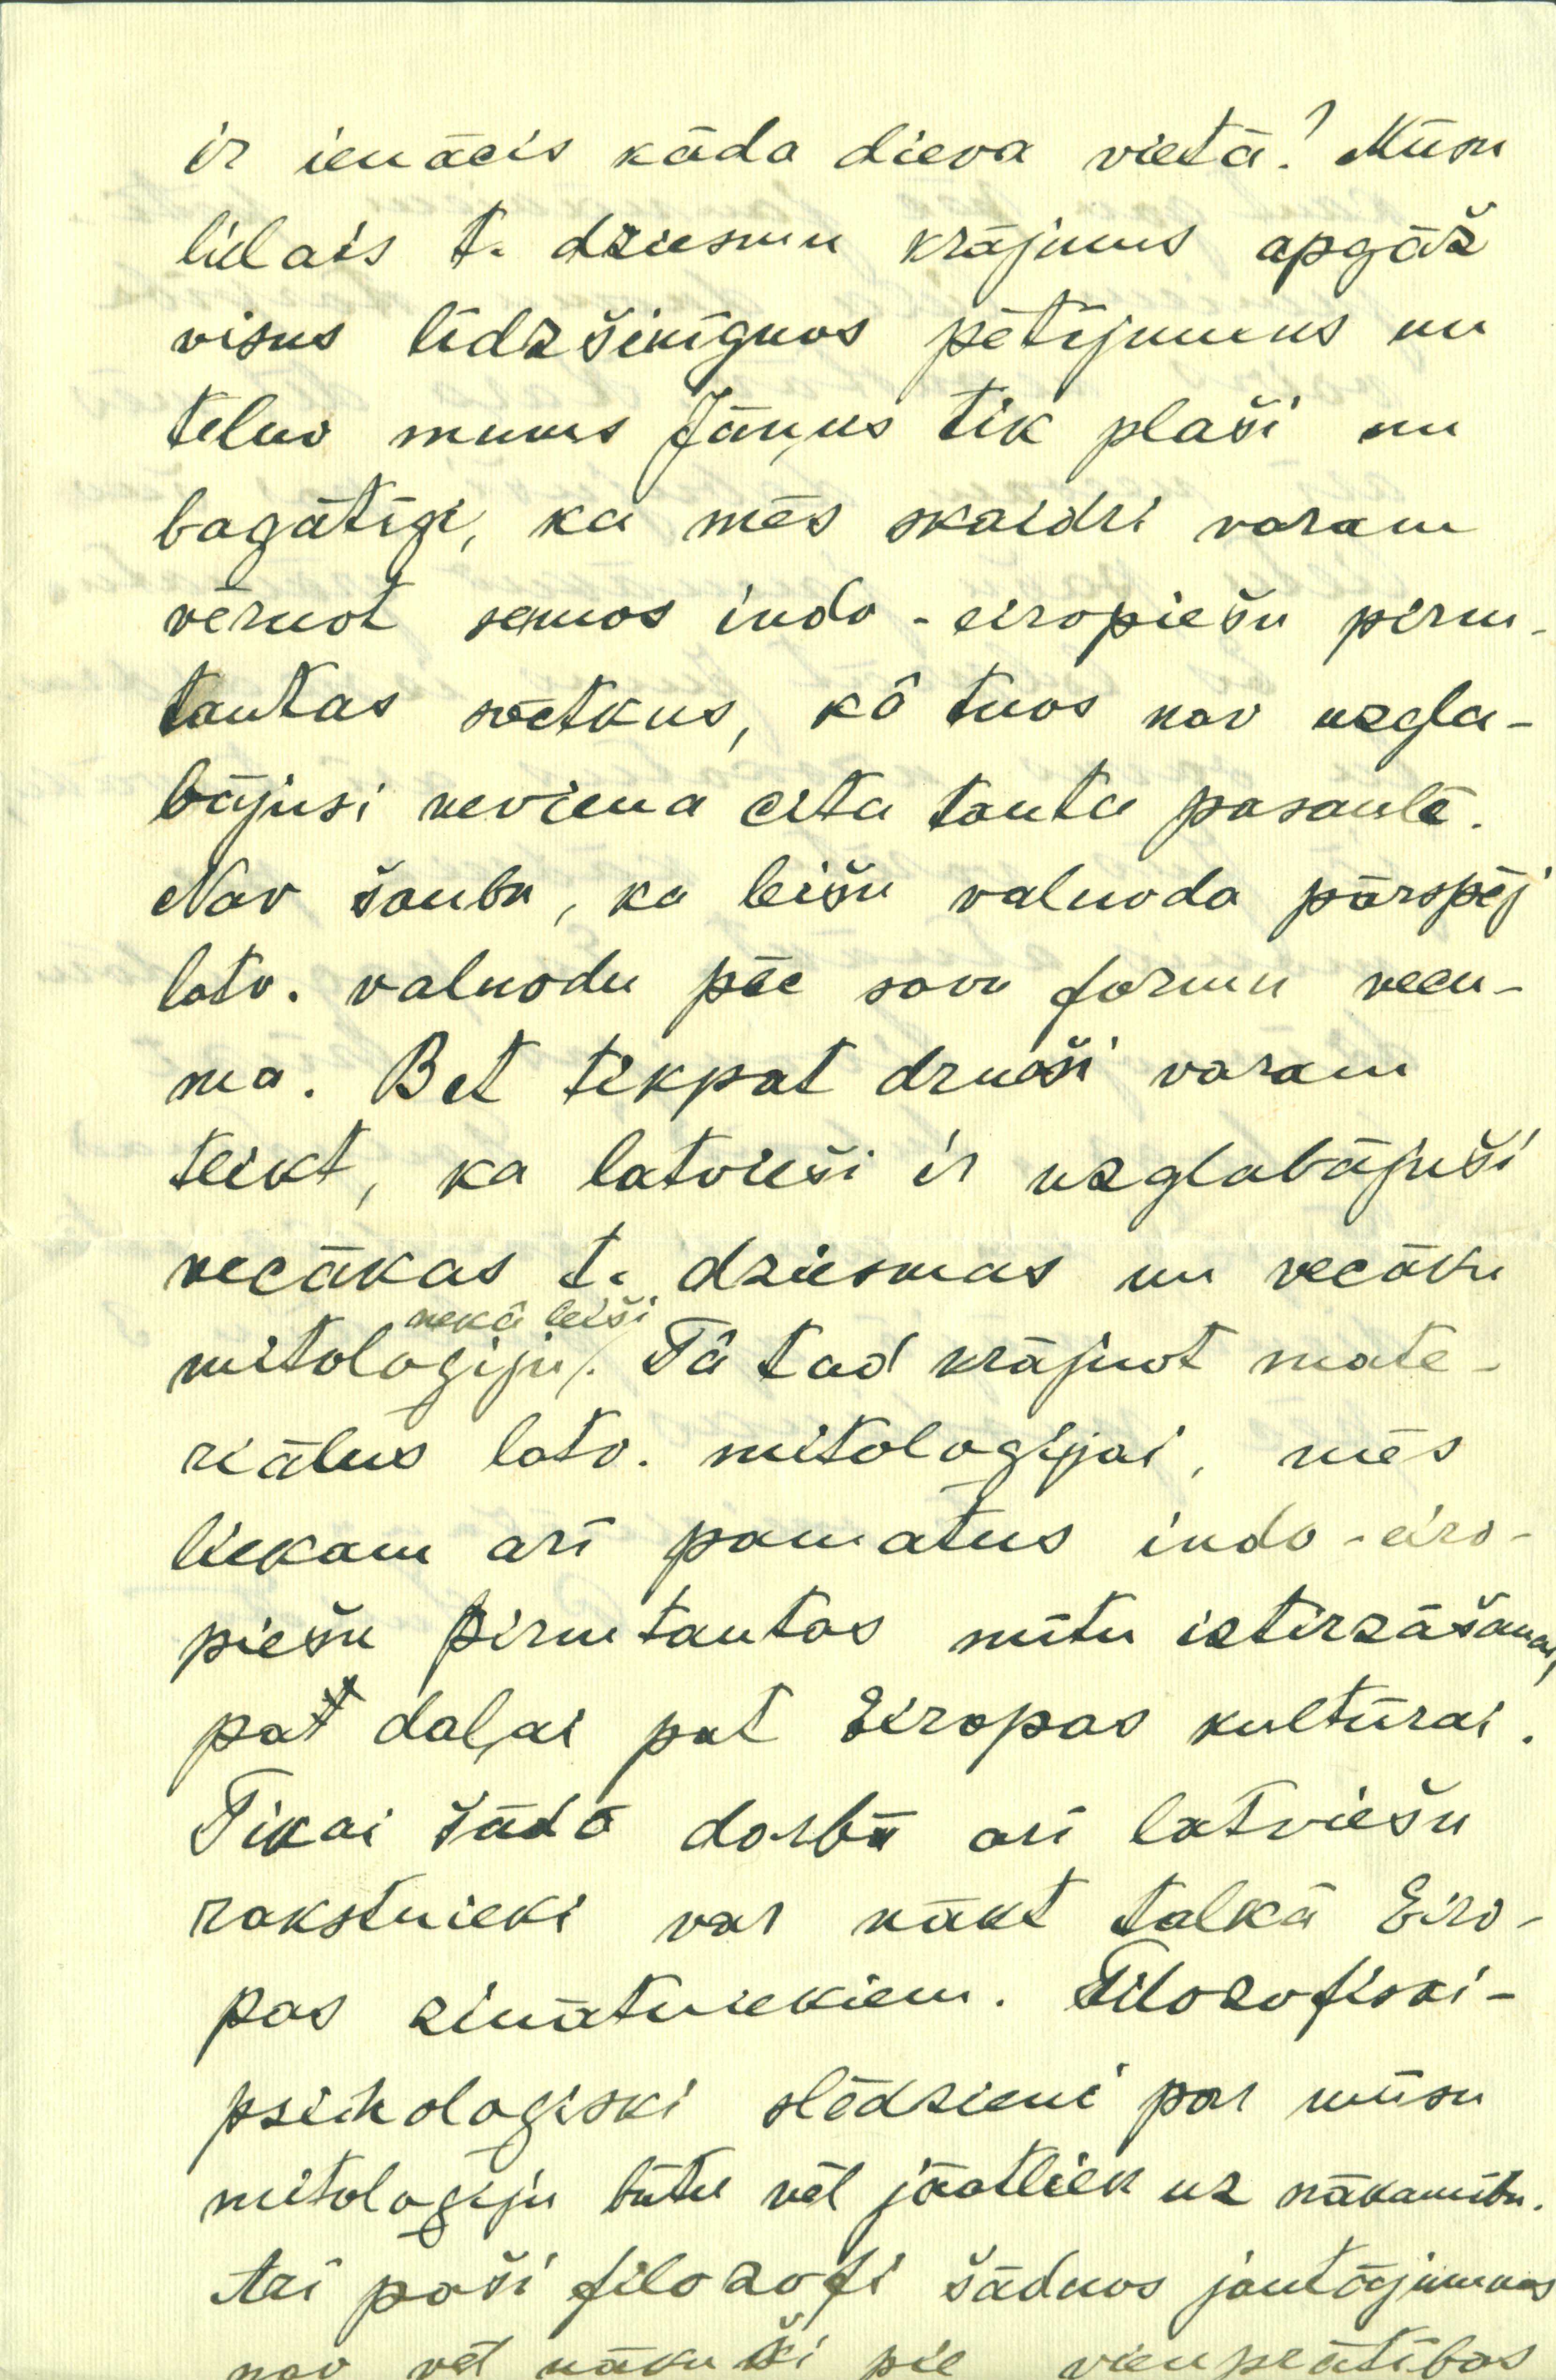 ir ienācis kāda dieva vietā! Mūsu
lielais t. dziesmu krājums apgāž
visus līdzšinīguos pētījumus un
tēluo mums Jāņus tik plaši un
bagātīgi, ka mēs skaidri varam
vēruot senuos indo-eiropiešu pirm-
tautas svētkus, kâ tuos nav uzgla-
bājusi neviena cita tauta pasaulē.
Nav šaubu, ka leišu valuoda pārspēj
latv. valuodu pēc savu formu vecu-
ma. Bet tikpat druoši varam
teikt, ka latvieši ir uzglabājuši
vecākas t. dziesmas un vecāku
nekâ leiši
mitologiju/. Tâ tad krājuot mate-
riālus latv. mitologijai, mēs
liekam arī pamatus indo-eiro-
piešu pirmtautas mītu iztirzāšanai,
pat daļai pat Eiropas kultūrai.
Tikai šādā darbā arī latviešu
rakstnieki var nākt talkā Eiro-
pas zinātniekiem. Filozofiski-
psihologiski slēdzieni par mūsu
mitologiju būtu vēl jāatliek uz nākamību.
Arī paši filozofi šāduos jautājumuos
nav vēl nākuši pie vienprātības